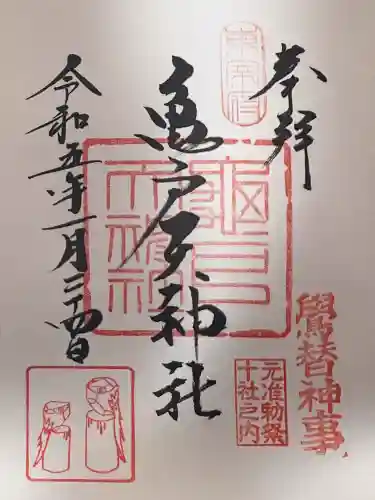 奉拝
東宰府
亀戸天神社
令和五年一月二十四日
鷽替神事
元准勅祭
十社之内